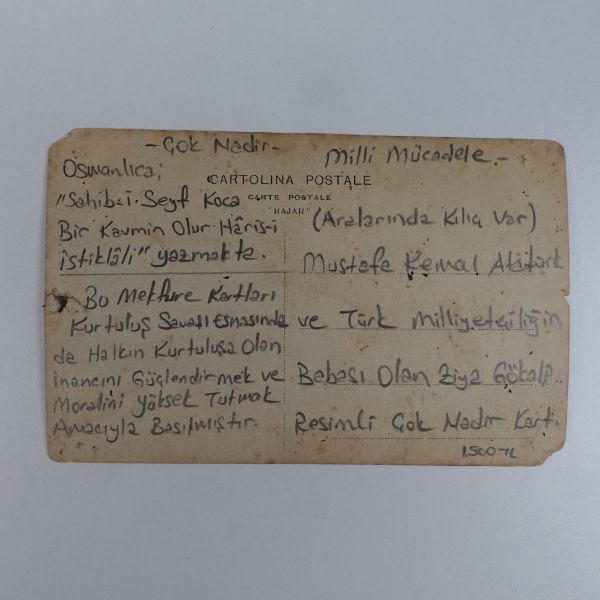 -Çok Nadir-
Milli Mücadele-
Osmanlıca;
CARTOLINA POSTALE
CARTE POSTALE
"RAJAR"
"Sahib-i-Seyf Koca
Bir Kavmin Olur Hâris-i
istiklâli" yazmakta.
Bu Mefkure Kartları
Kurtuluş Savaşı Esnasında
da Halkın Kurtuluşa Olan
inancını Güçlendirmek ve
Moralini Yüksek Tutmak
Amacıyla Basılmıştır.
(Aralarında Kılıç Var)
Mustafa Kemal Atatürk
ve Türk Milliyetçiliğin
Babası Olan Ziya Gökalp
Resimli Çok Nadir Kart.
1.500 TL